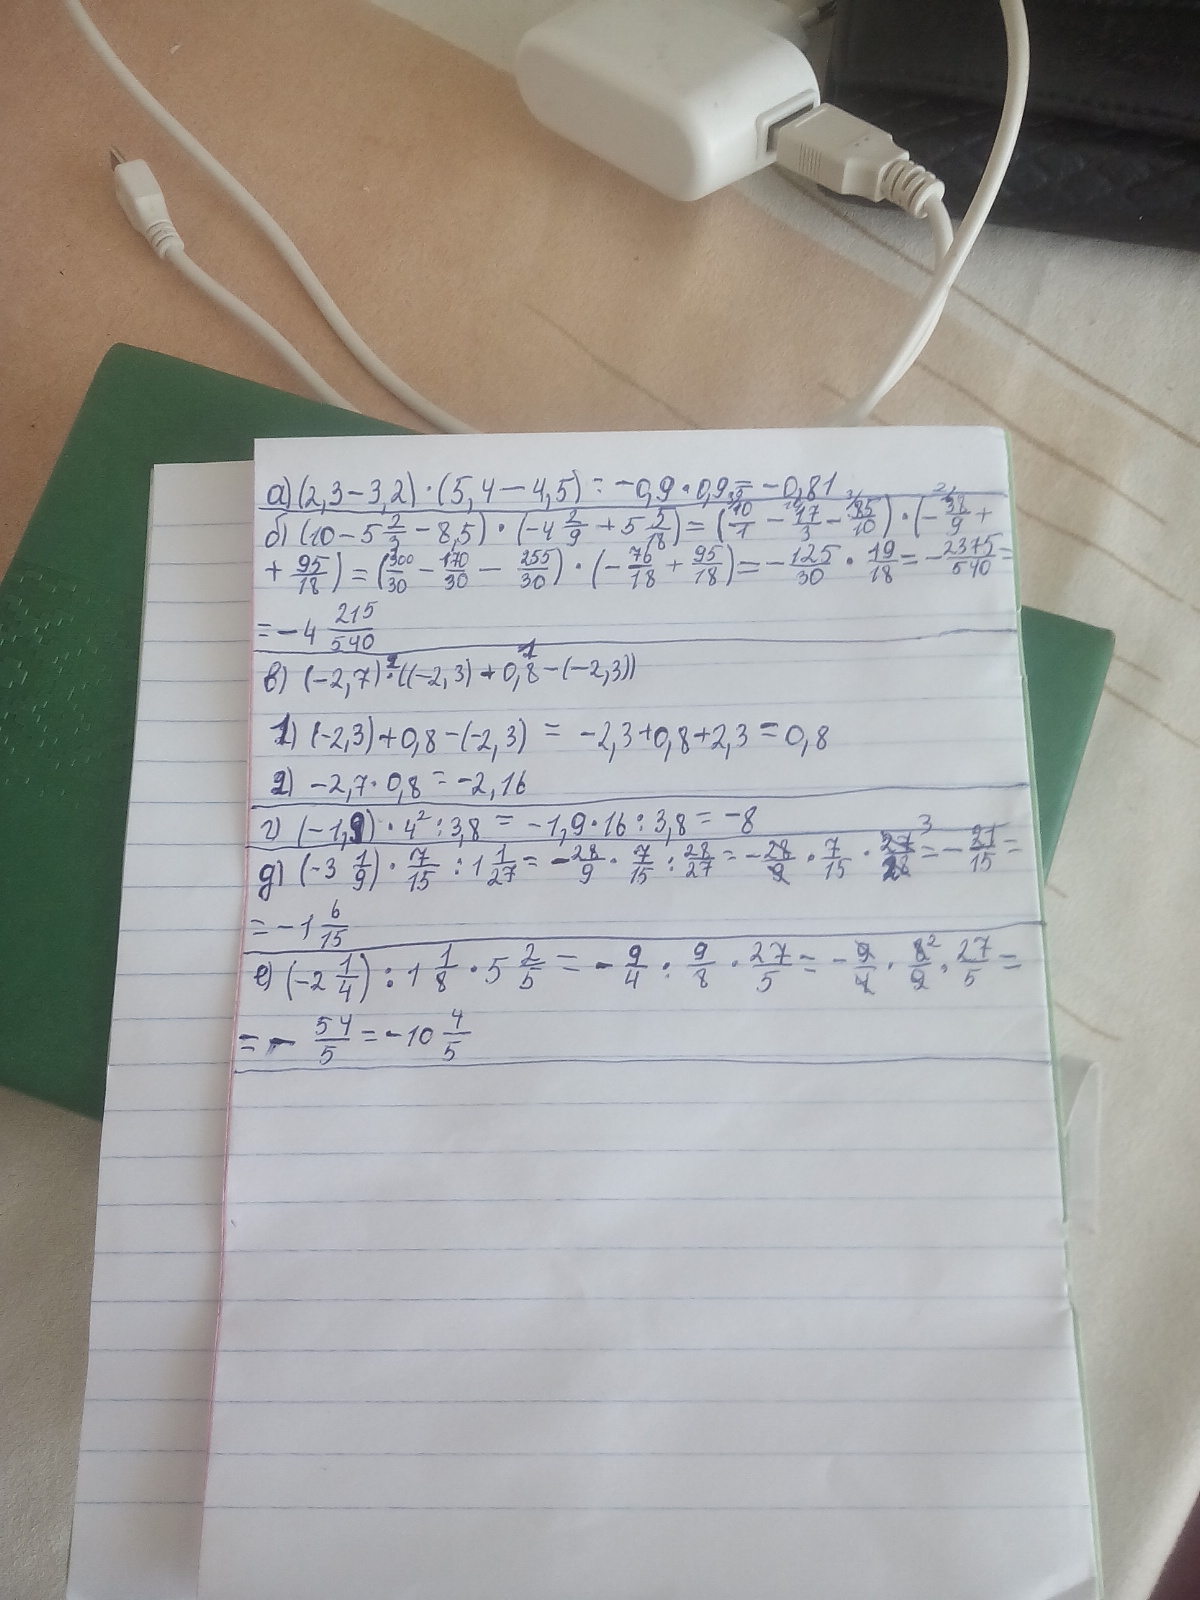 а) (2,3-3,2)·(5,4-4,5) = -0,9·0,9 = -0,81
б) (10 - 5 2/3 - 8,5)·(-4 2/9 + 5 5/18) = (10/1 - 17/3 - 85/10)·(-38/9 +
+ 95/18) = (300/30 - 170/30 - 255/30)·(-76/18 + 95/18) = -125/30 · 19/18 = -2375/540 =
= -4 215/540
в) (-2,7)·((-2,3)+0,8-(-2,3))
1) (-2,3)+0,8-(-2,3) = -2,3+0,8+2,3 = 0,8
2) -2,7·0,8 = -2,16
г) (-1,9)·4² : 3,8 = -1,9·16 : 3,8 = -8
д) (-3 1/9)· 7/15 : 1 1/27 = -28/9 · 7/15 : 28/27 = -28/9 · 7/15 · 27/28 = -21/15 =
= -1 6/15
е) (-2 1/4) : 1 1/8 · 5 2/5 = -9/4 : 9/8 · 27/5 = -9/4 · 8/9 · 27/5 =
= - 54/5 = -10 4/5